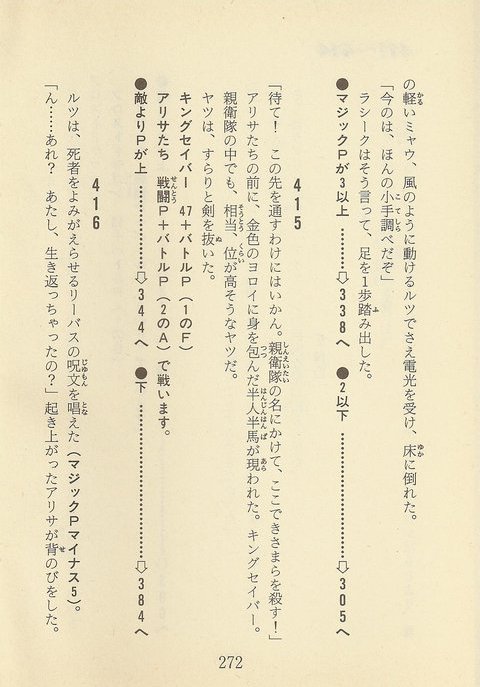 の軽いミャウ、風のように動けるルツでさえ電光を受け、床に倒れた。
「今のは、ほんの小手調べだぞ」
ラシークはそう言って、足を1歩踏み出した。
●マジックPが3以上 ……………⇨338へ ●2以下 ……………⇨305へ
415
「待て！ この先を通すわけにはいかん。親衛隊の名にかけて、ここできさまらを殺す！」
アリサたちの前に、金色のヨロイに身を包んだ半人半馬が現われた。キングセイバー。
親衛隊の中でも、相当、位が高そうなヤツだ。
ヤツは、すらりと剣を抜いた。
キングセイバー 47＋バトルP（1のF）
アリサたち 戦闘P＋バトルP（2のA）で戦います。
●敵よりPが上 ……………⇨344へ ●下 ……………⇨384へ
416
ルツは、死者をよみがえらせるリーバスの呪文を唱えた（マジックPマイナス5）。
「ん……あれ？ あたし、生き返っちゃったの？」起き上がったアリサが背のびをした。
272